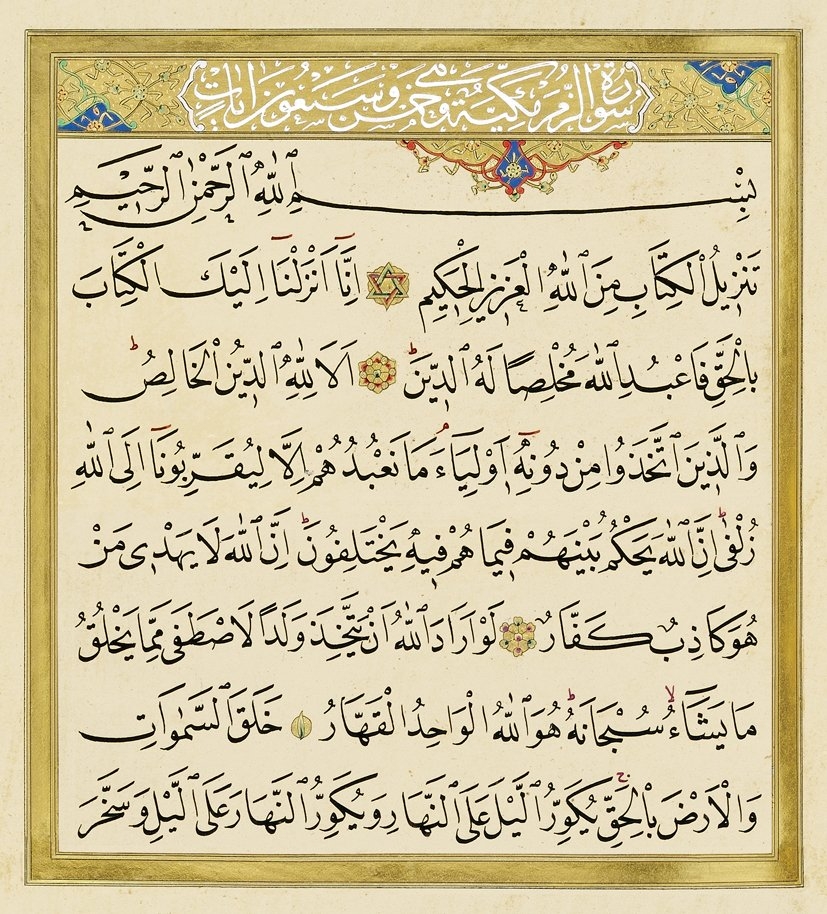 سُورَةُ الزُّمَرِ مَكِّيَّةٌ وَهِيَ خَمْسٌ وَسَبْعُونَ اٰيَاتٍ
بِسْمِ ٱللّٰهِ ٱلرَّحْمٰنِ ٱلرَّحِيمِ
تَنْزِيلُ الْكِتَابِ مِنَ ٱللّٰهِ الْعَزِيزِ الْحَكِيمِ اِنَّٓا اَنْزَلْنَٓا اِلَيْكَ الْكِتَابَ
بِالْحَقِّ فَاعْبُدِ ٱللّٰهَ مُخْلِصًا لَهُ ٱلدِّينَۜ اَلَا لِلّٰهِ ٱلدِّينُ الْخَالِصُۜ
وَٱلَّذِينَ ٱتَّخَذُوا مِنْ دُونِهِٓ اَوْلِيَٓاءَۢ مَا نَعْبُدُهُمْ اِلَّا لِيُقَرِّبُونَٓا اِلَى ٱللّٰهِ
زُلْفٰىۜ اِنَّ ٱللّٰهَ يَحْكُمُ بَيْنَهُمْ فِيمَا هُمْ فِيهِ يَخْتَلِفُونَۜ اِنَّ ٱللّٰهَ لَا يَهْدِى مَنْ
هُوَ كَاذِبٌ كَفَّارٌ لَوْ اَرَادَ ٱللّٰهُ اَنْ يَتَّخِذَ وَلَدًا لَاصْطَفٰى مِمَّا يَخْلُقُ
مَا يَشَٓاءُۙ سُبْحَانَهُۜ هُوَ ٱللّٰهُ الْوَاحِدُ الْقَهَّارُ خَلَقَ ٱلسَّمٰوَاتِ
وَالْاَرْضَ بِالْحَقِّۚ يُكَوِّرُ ٱلَّيْلَ عَلَى ٱلنَّهَارِ وَيُكَوِّرُ ٱلنَّهَارَ عَلَى ٱلَّيْلِ وَسَخَّرَ